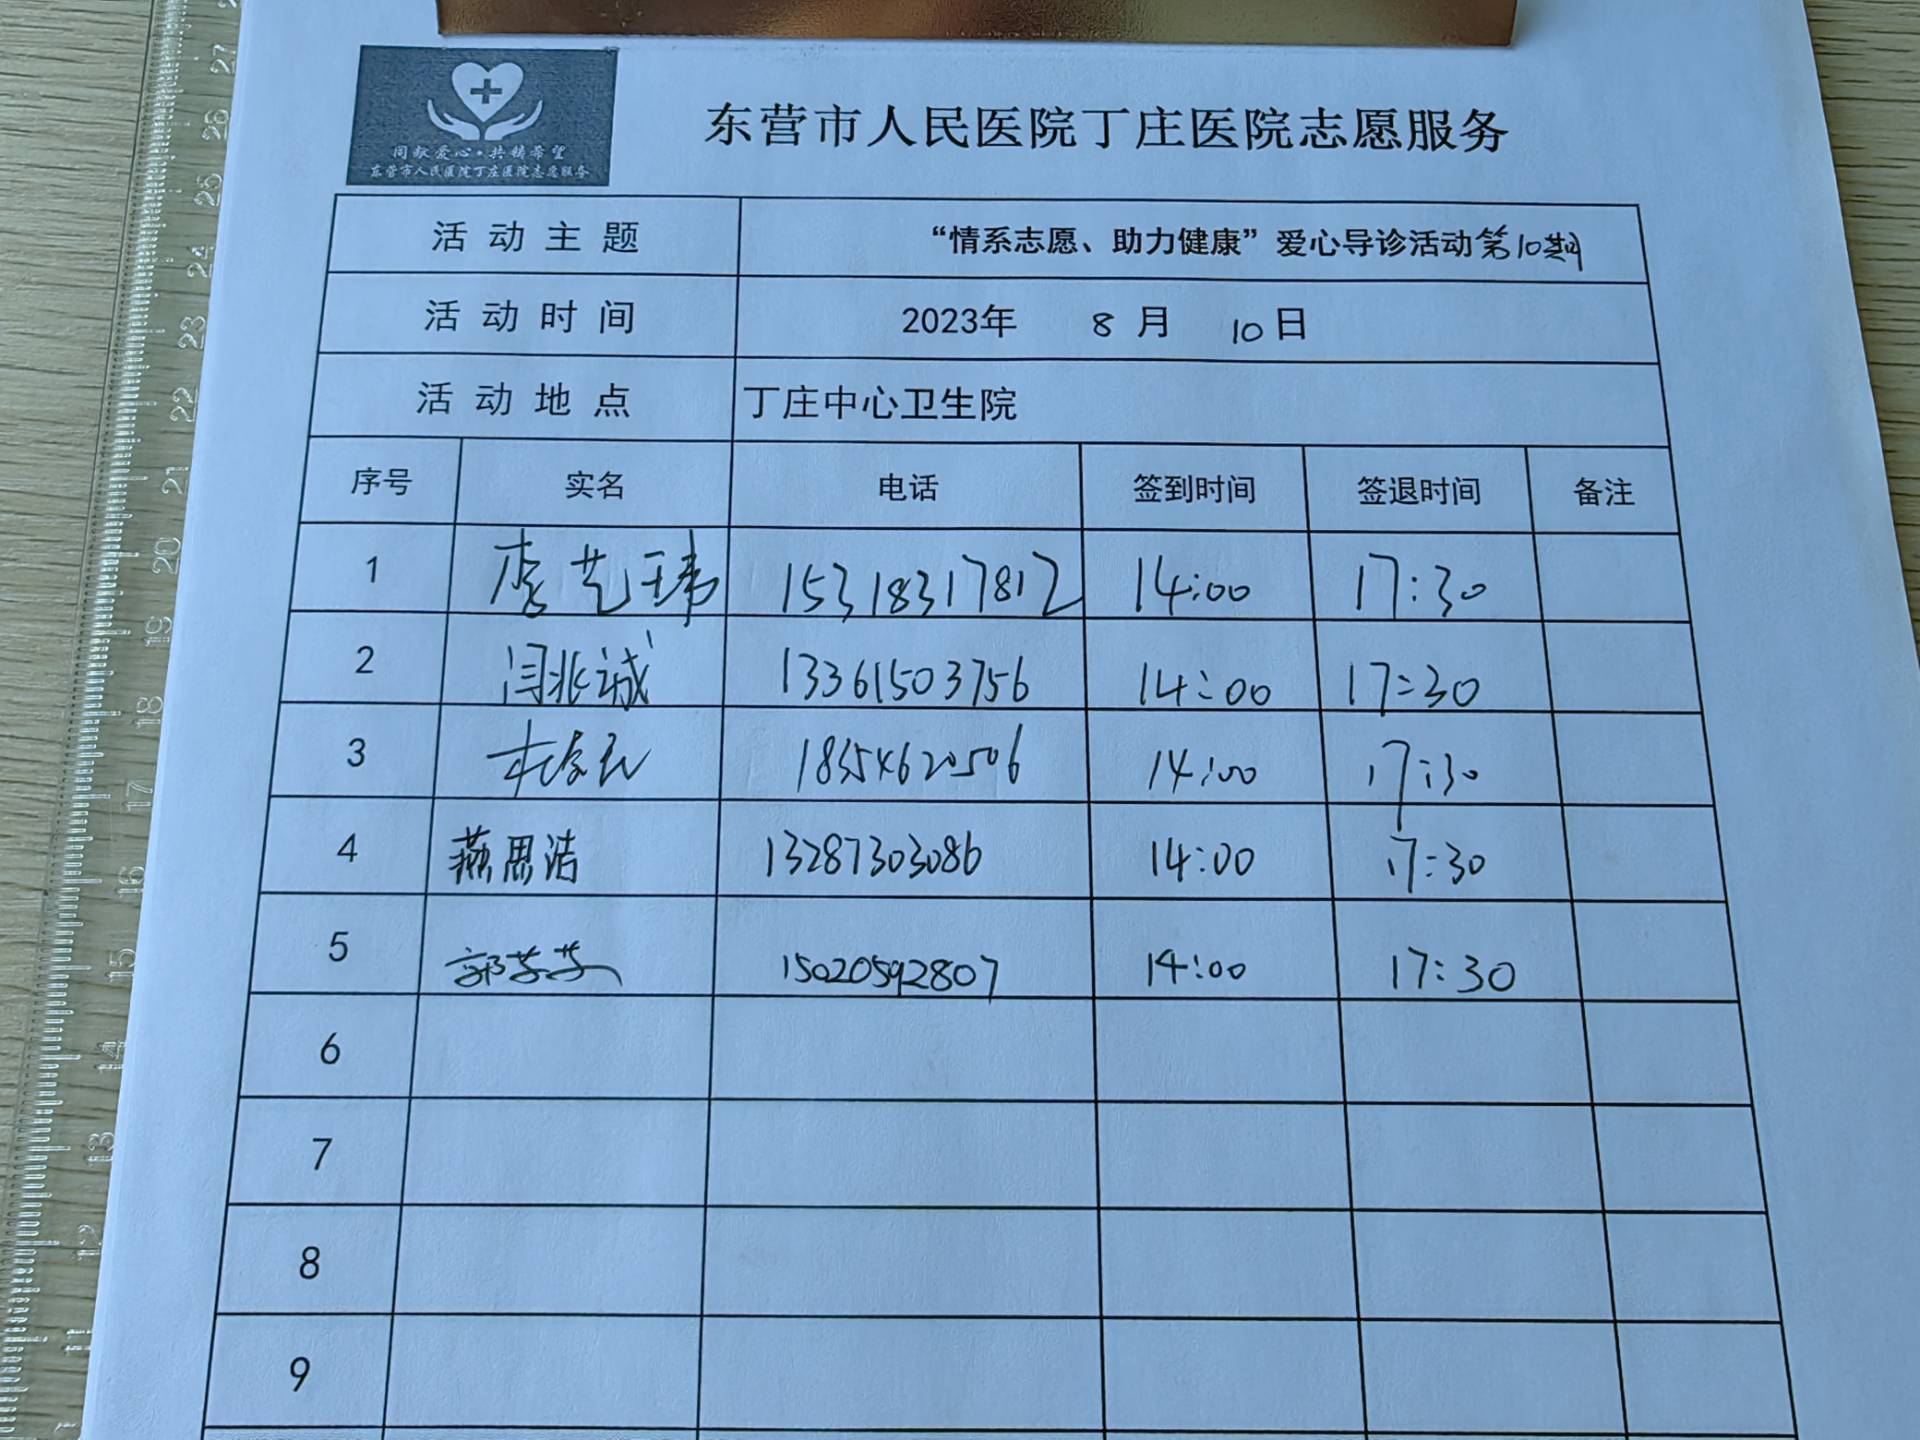 同献爱心·共铸希望
东营市人民医院丁庄医院志愿服务
东营市人民医院丁庄医院志愿服务
活动主题 “情系志愿、助力健康”爱心导诊活动第10期
活动时间 2023年 8月 10日
活动地点 丁庄中心卫生院
序号 实名 电话 签到时间 签退时间 备注
1 李艺玮 15318317812 14:00 17:30
2 闫兆诚 13361503756 14:00 17:30
3 18354620506 14:00 17:30
4 燕思洁 13287303086 14:00 17:30
5 郭苓苓 15020592807 14:00 17:30
6
7
8
9
27
26
25
24
23
22
21
20
19
18
17
16
15
14
13
12
11